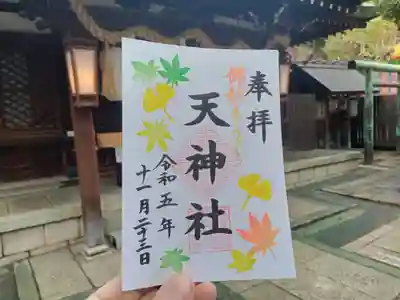 奉拝
天神社
令和五年
十一月二十三日